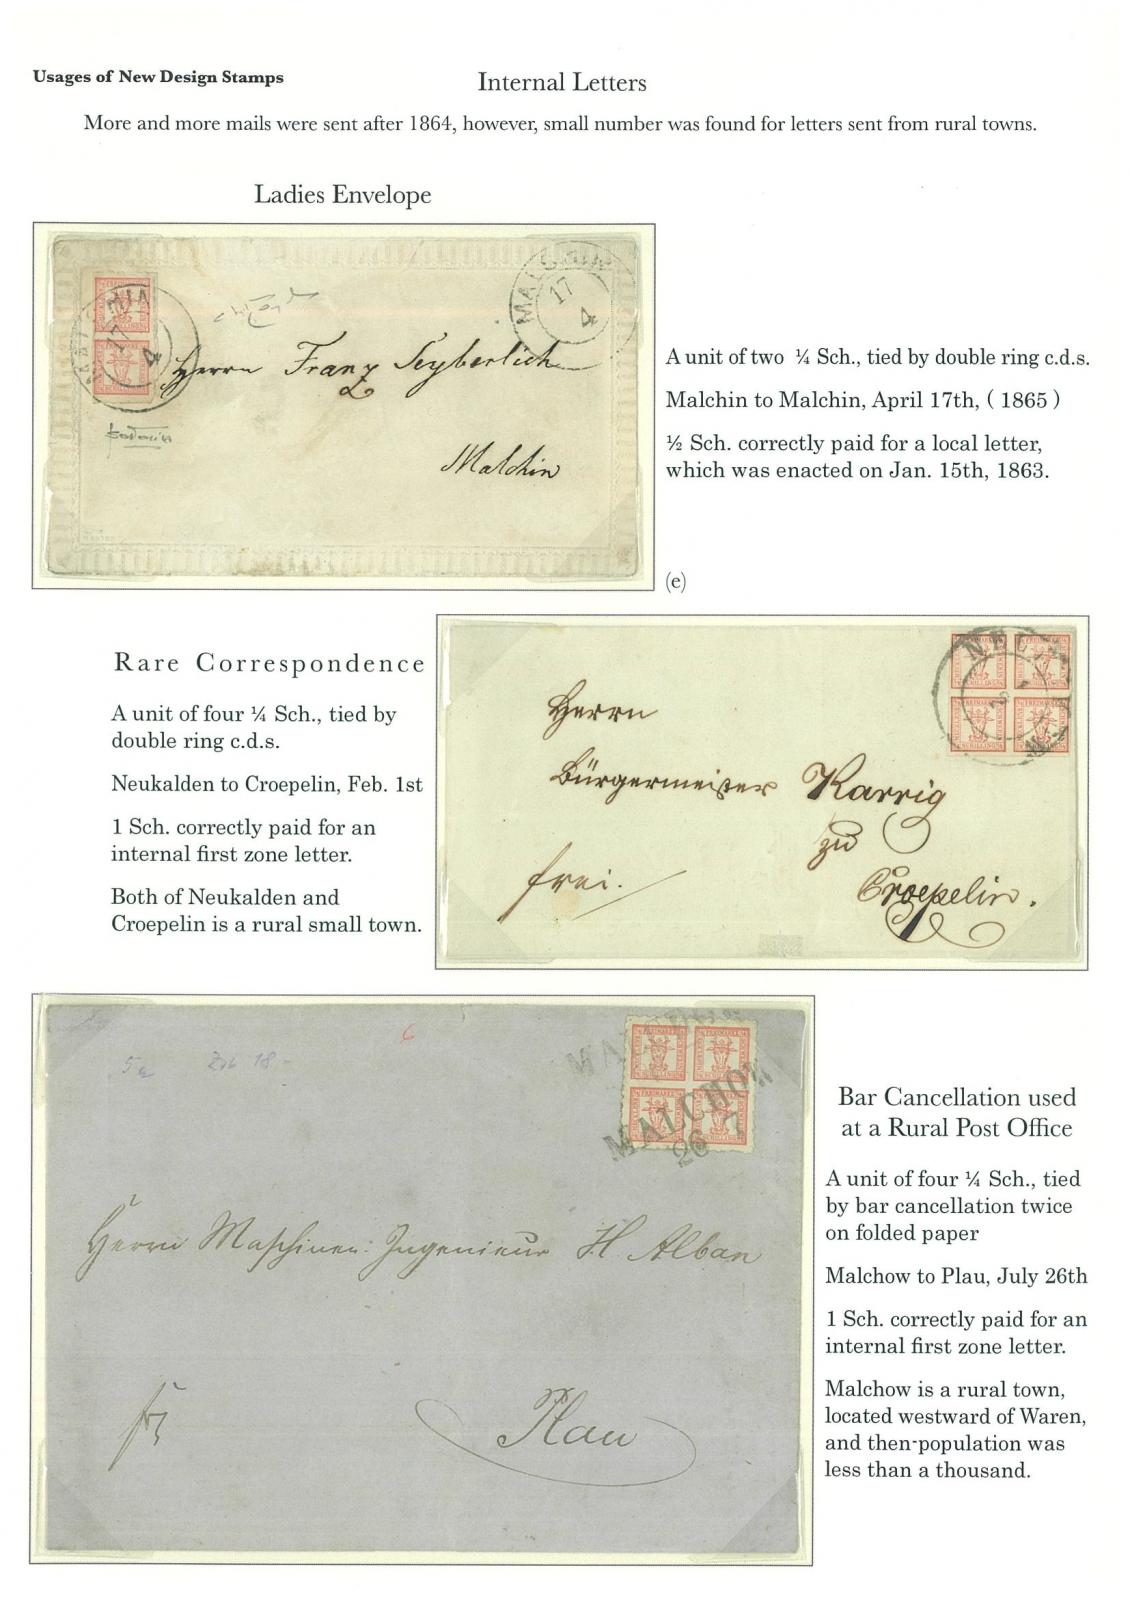 Usages of New Design Stamps
Internal Letters
More and more mails were sent after 1864, however, small number was found for letters sent from rural towns.
Ladies Envelope
MALCHIN
17
4
MALCHIN
17
4
Herrn Franz Seyberlich
Malchin
A unit of two ¼ Sch., tied by double ring c.d.s.
Malchin to Malchin, April 17th, ( 1865 )
½ Sch. correctly paid for a local letter,
which was enacted on Jan. 15th, 1863.
(e)
Rare Correspondence
A unit of four ¼ Sch., tied by
double ring c.d.s.
Neukalden to Croepelin, Feb. 1st
1 Sch. correctly paid for an
internal first zone letter.
Both of Neukalden and
Croepelin is a rural small town.
FREIMARKE
Herrn
Bürgermeister Karrig
zu
frei.
Croepelin.
6
FREIMARKE
MALCHOW
26 7
Herrn Maschinen-Ingenieur H. Alban
Plau
Bar Cancellation used
at a Rural Post Office
A unit of four ¼ Sch., tied
by bar cancellation twice
on folded paper
Malchow to Plau, July 26th
1 Sch. correctly paid for an
internal first zone letter.
Malchow is a rural town,
located westward of Waren,
and then-population was
less than a thousand.